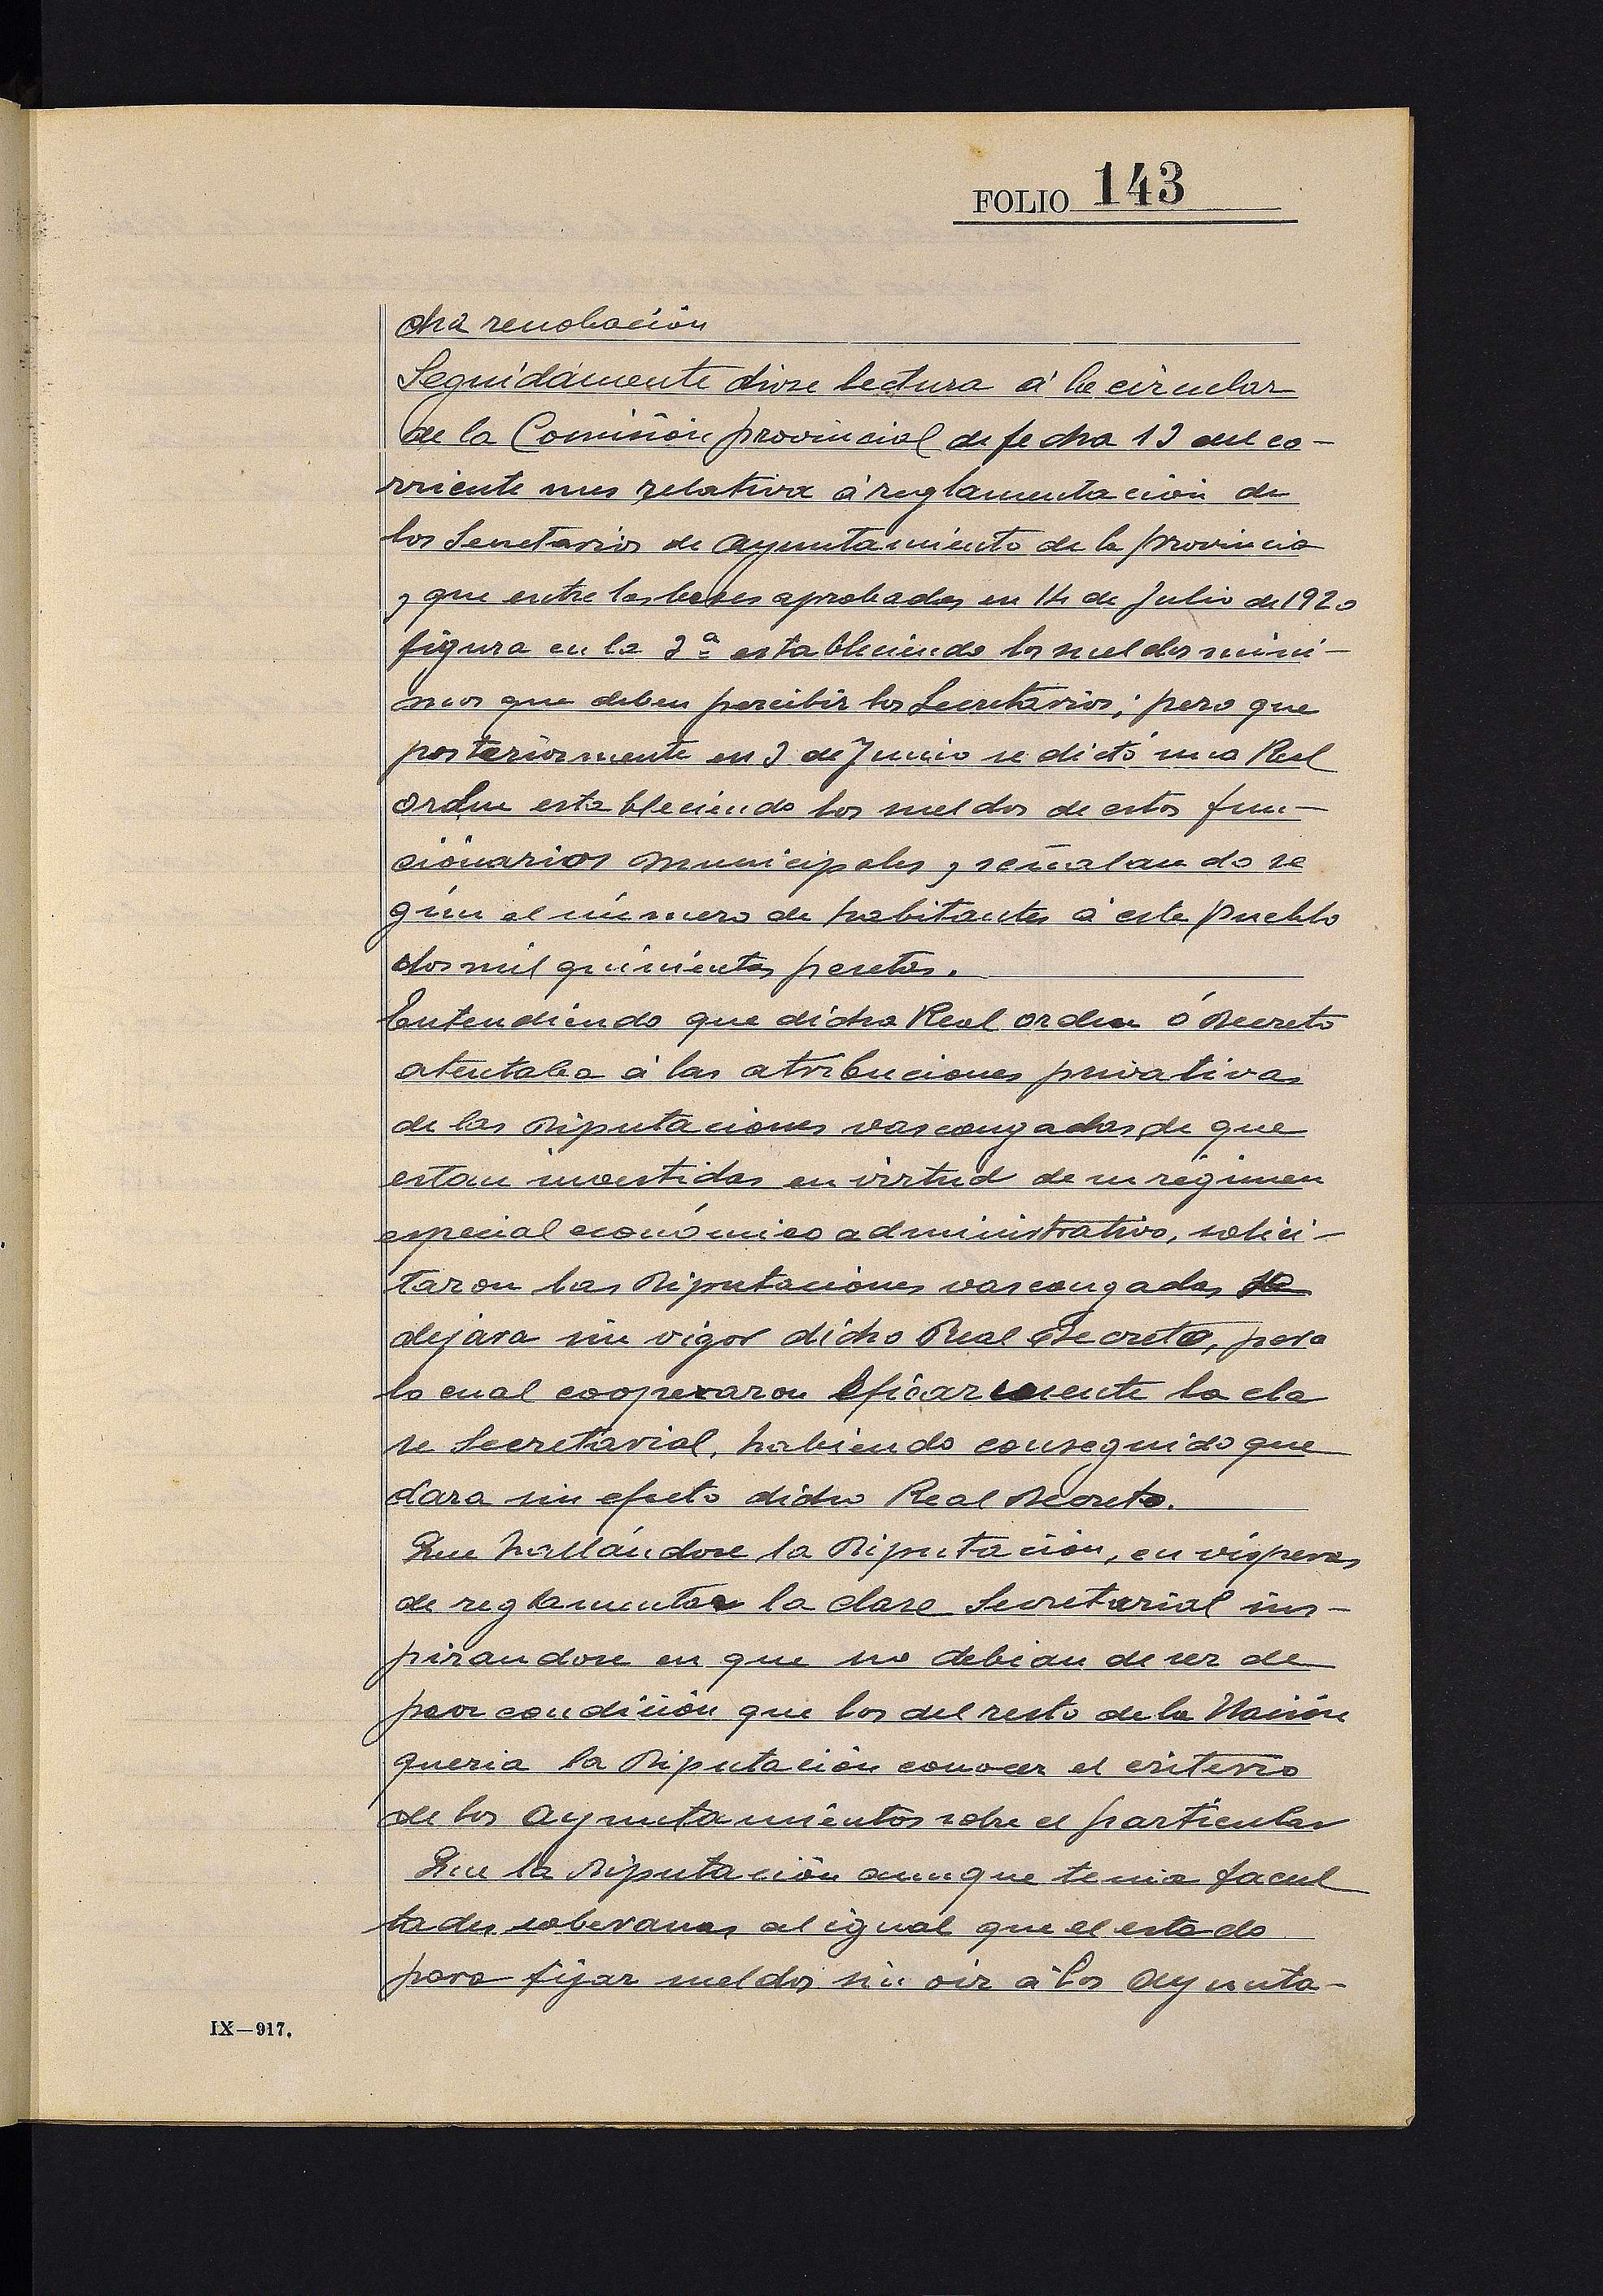 FOLIO 143
cha renobación
Seguidamente diose lectura á la circular
de la Comisión provincial de fecha 13 del co-
rriente mes relativa á reglamentación de
los Secretarios de Ayuntamiento de la provincia
y que entre las bases aprobadas en 14 de Julio de 1920
figura en la 3ª estableciendo los sueldos mini-
mos que deben percibir los Secretarios; pero que
posteriormente en 3 de Junio se dictó una Real
orden estableciendo los sueldos de estos fun-
cionarios municipales y señalando se
gún el número de habitantes á este pueblo
dos mil quinientas pesetas.
Entendiendo que dicha Real orden ó Decreto
atentaba á las atribuciones privativas
de las Diputaciones vascongadas de que
estan investidas en virtud de su régimen
especial económico administrativo, solici-
taron las Diputaciones vascongadas se
dejara sin vigor dicho Real Decreto, para
lo cual cooperaron eficazmente la cla
se Secretarial, habiendo conseguido que
dara sin efecto dicho Real Decreto.
Que hallándose la Diputación, en vísperas
de reglamentar la clase Secretarial ins-
pirandose en que no debian de ser de
peor condición que los del resto de la Nación
queria la Diputación conocer el criterio
de los Ayuntamientos sobre el particular
Que la Diputación aunque tenia facul
tades soberanas al igual que el estado
para fijar sueldos sin oir á los Ayunta-
IX—917.